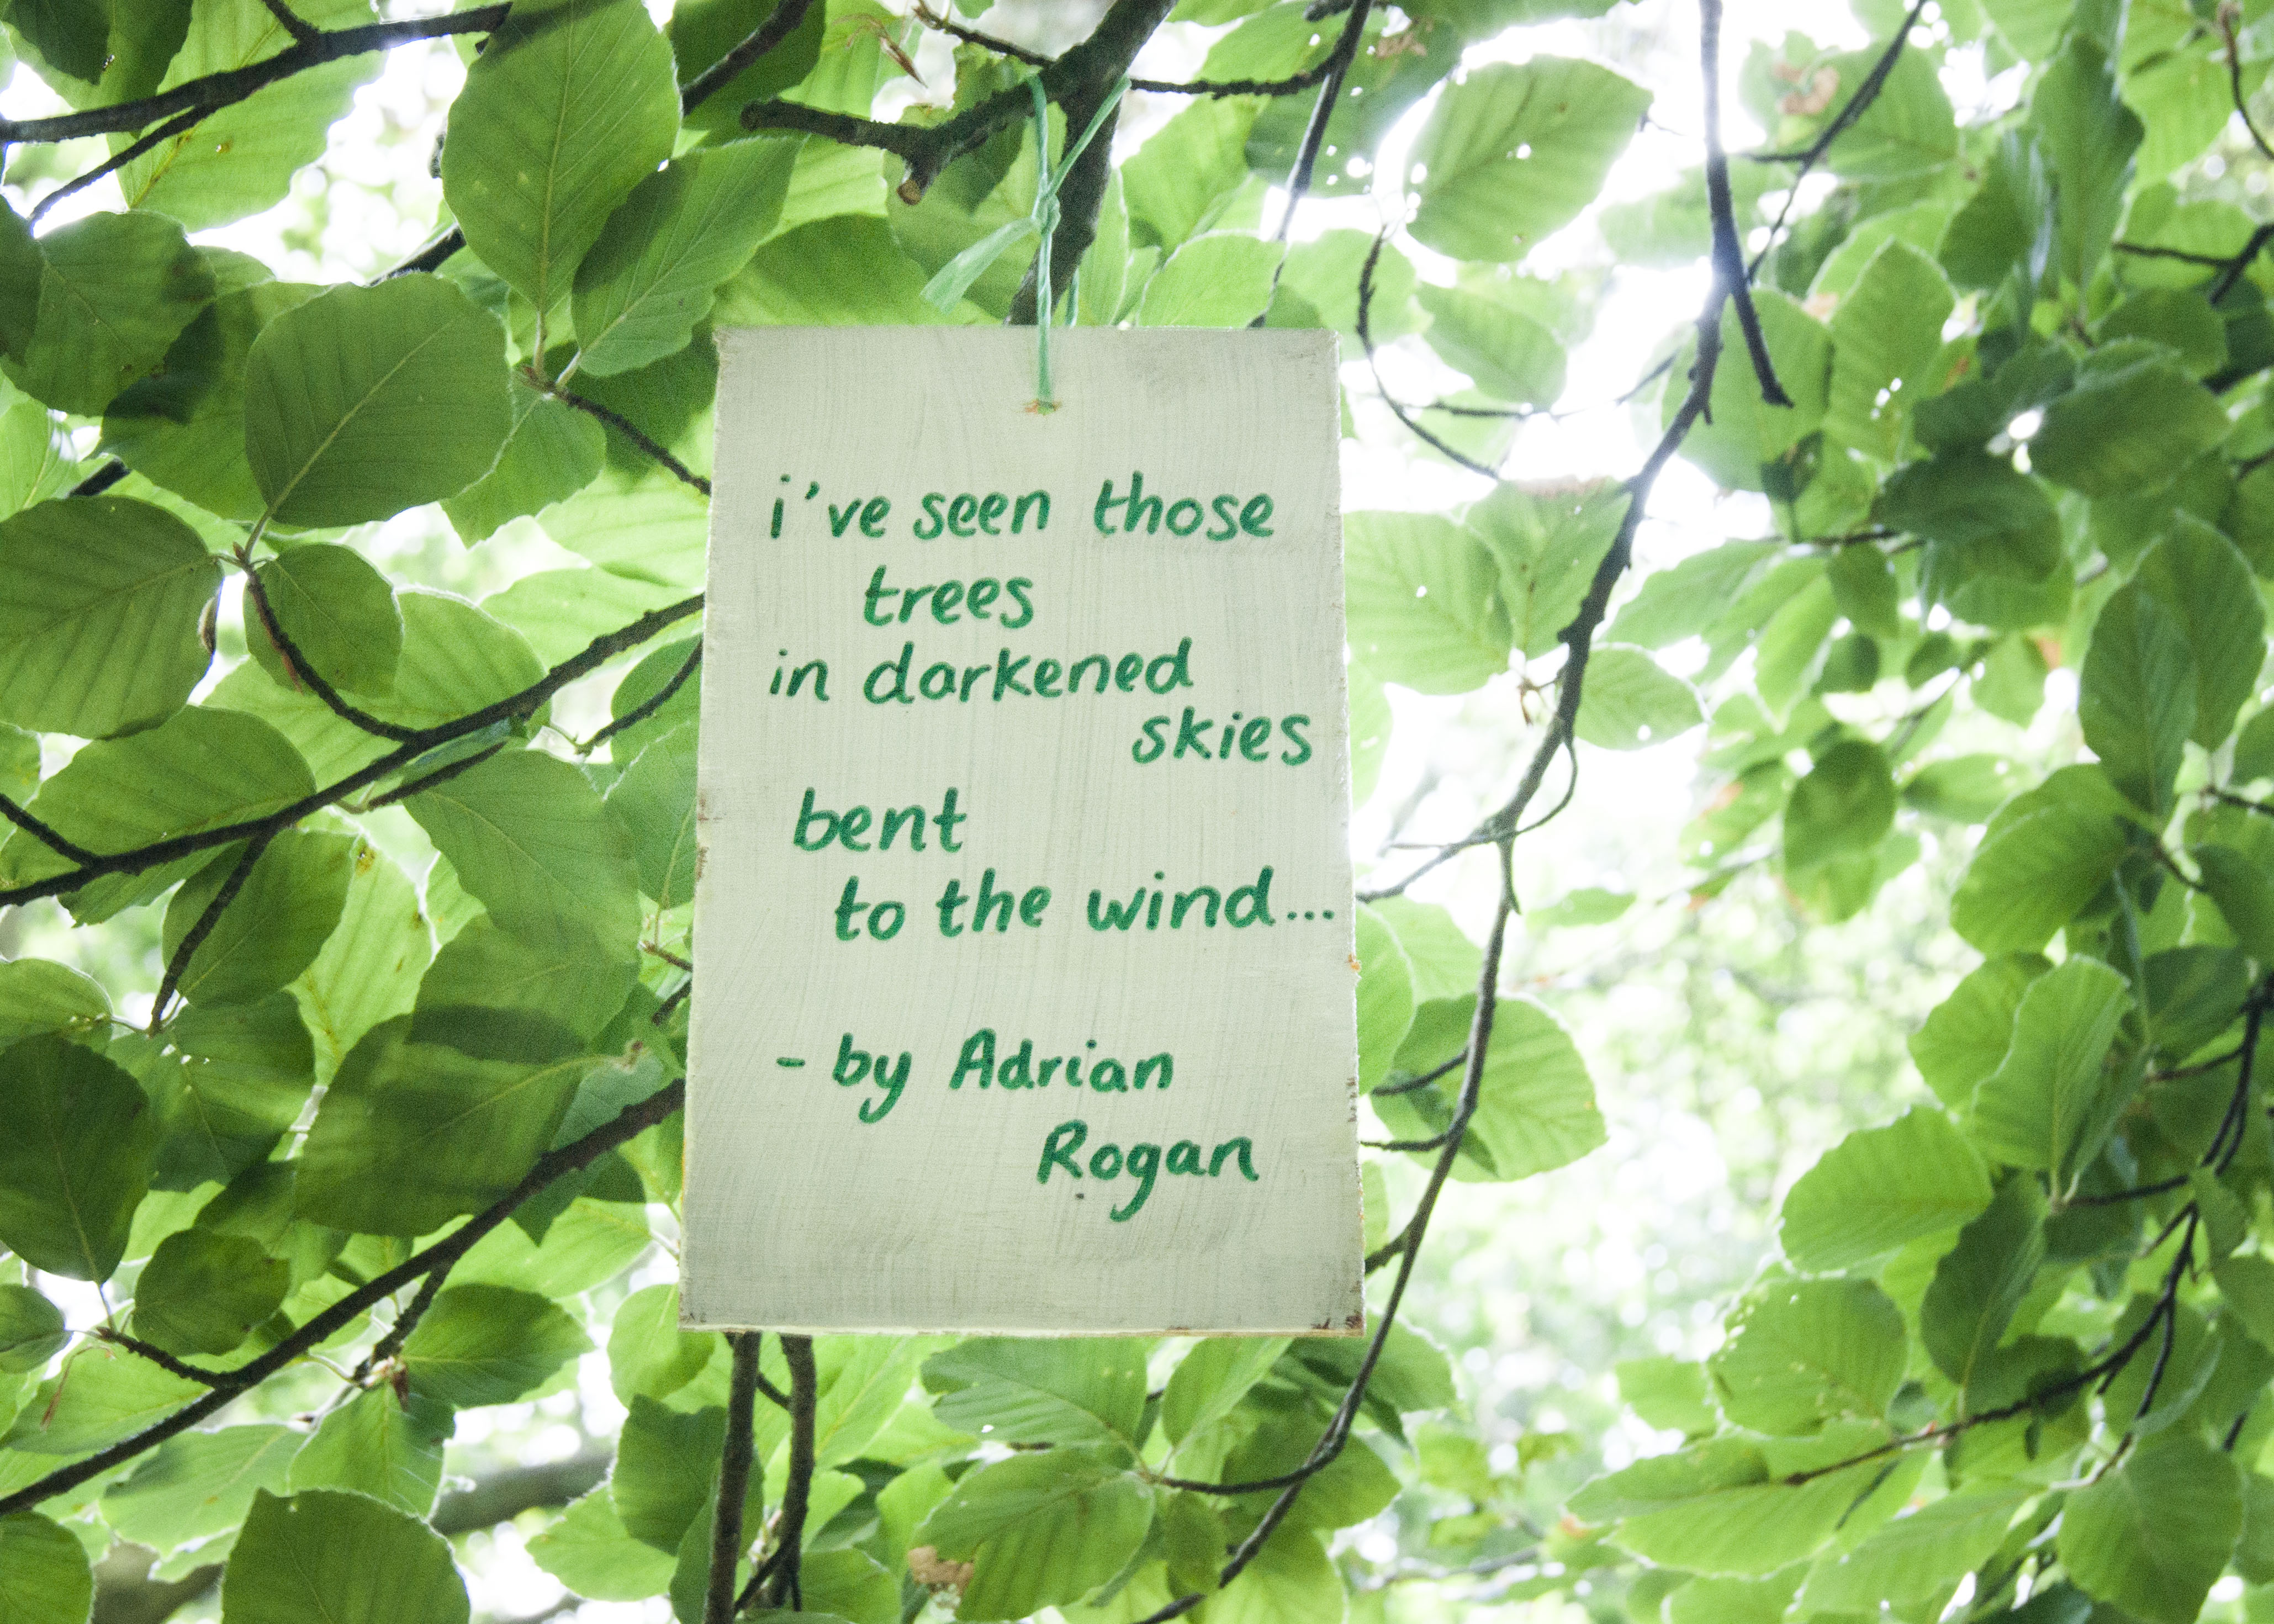 i've seen those
trees
in darkened
skies
bent
to the wind...
- by Adrian
Rogan